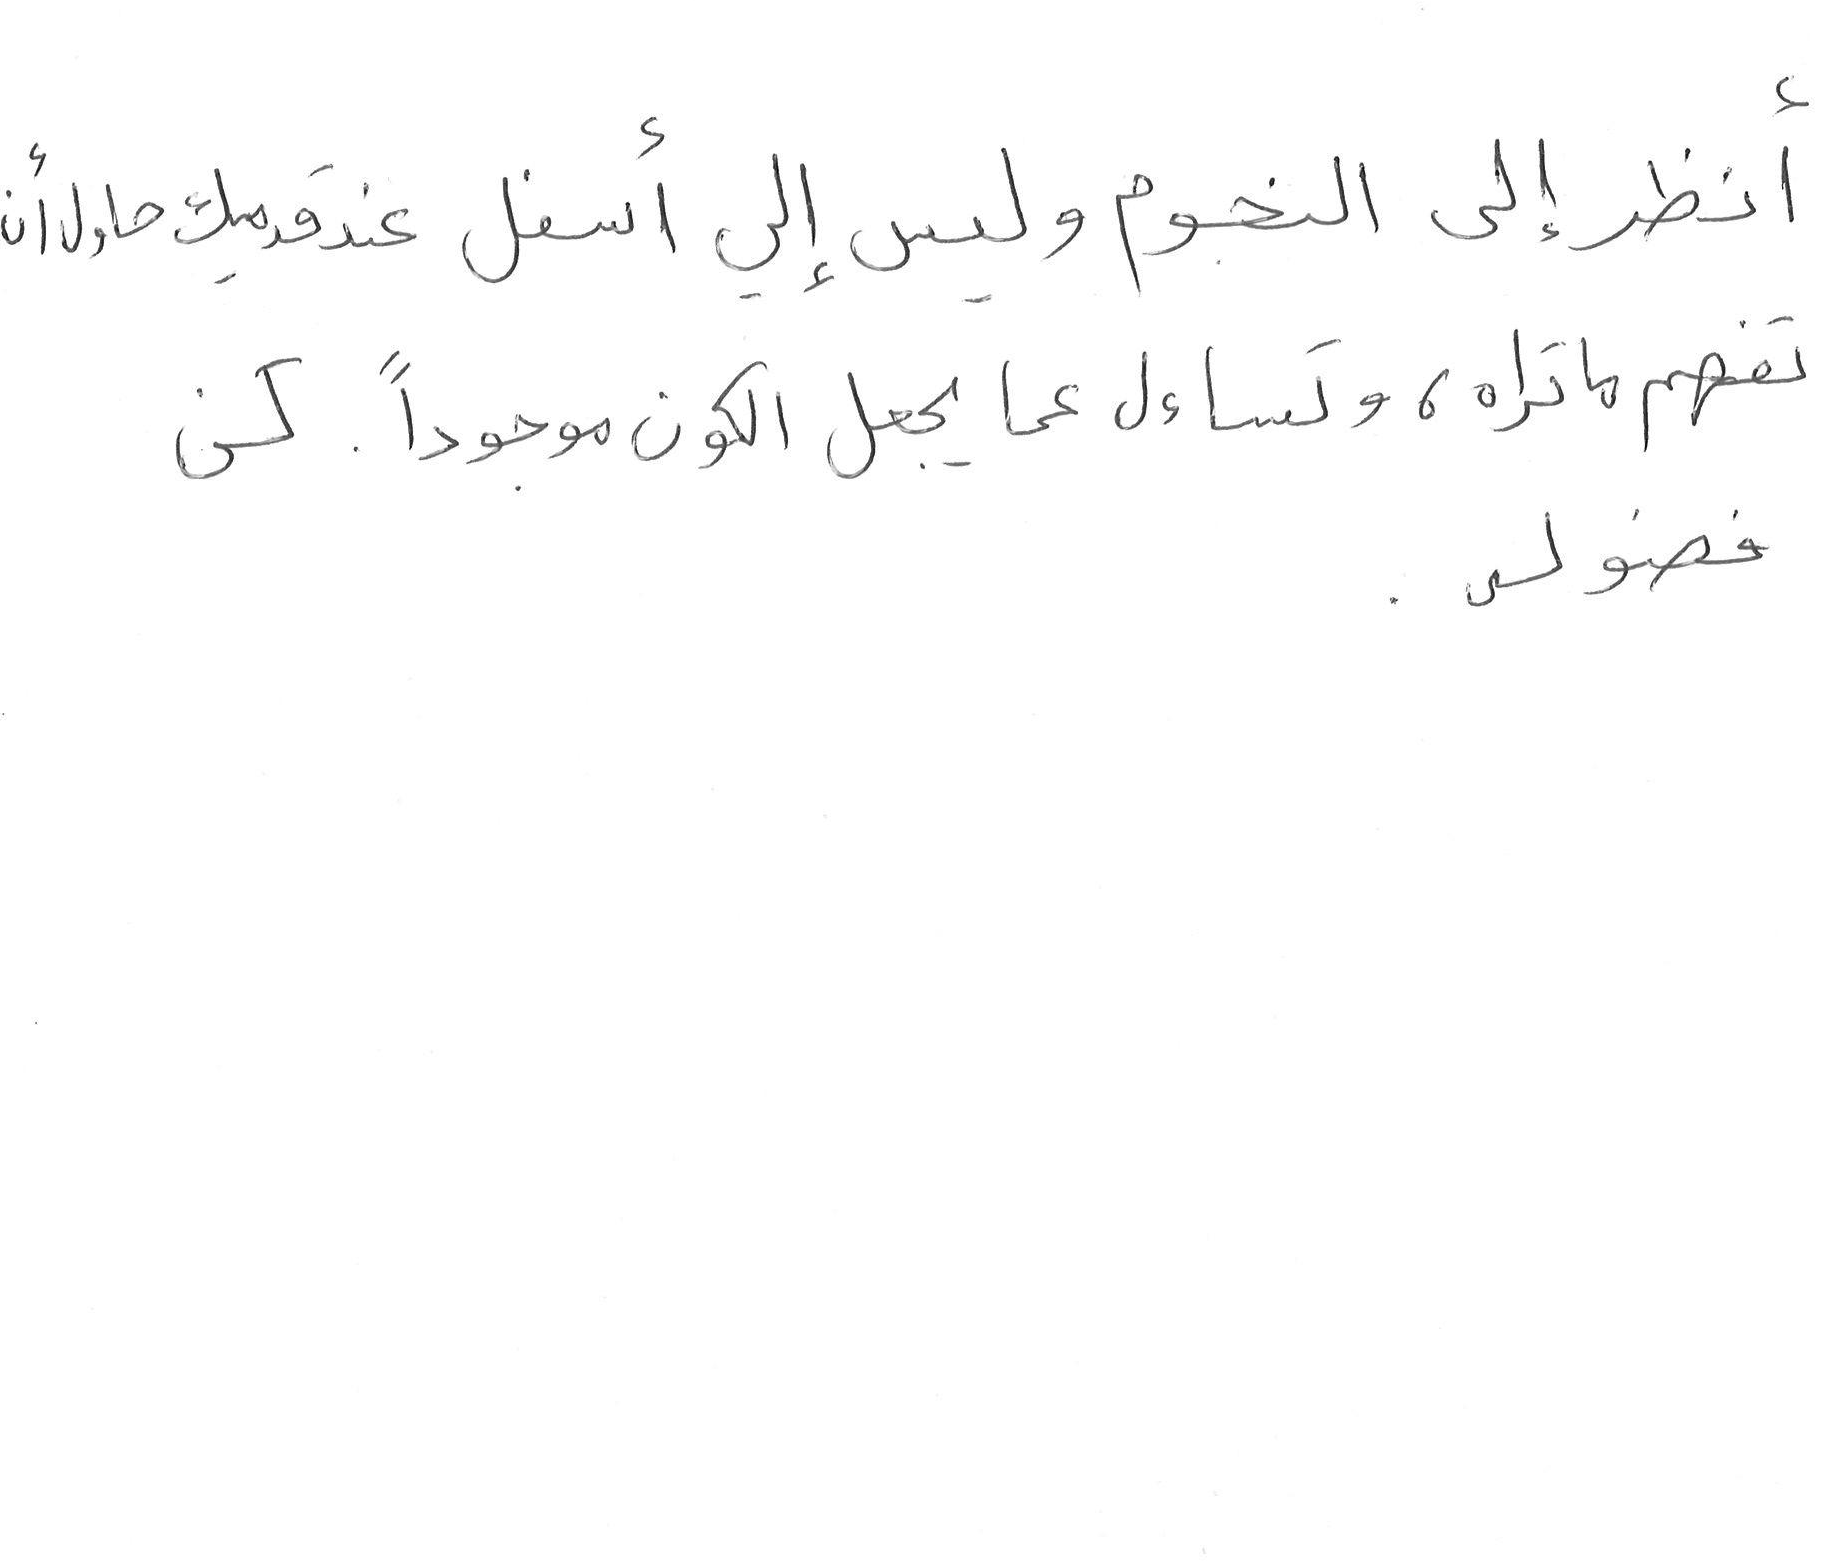 أنظر إلى النجوم وليس إلي أسفل عند قدميك حاول أن
تفهم ما تراه، وتساءل عما يجعل الكون موجوداً. كن
فضولى.